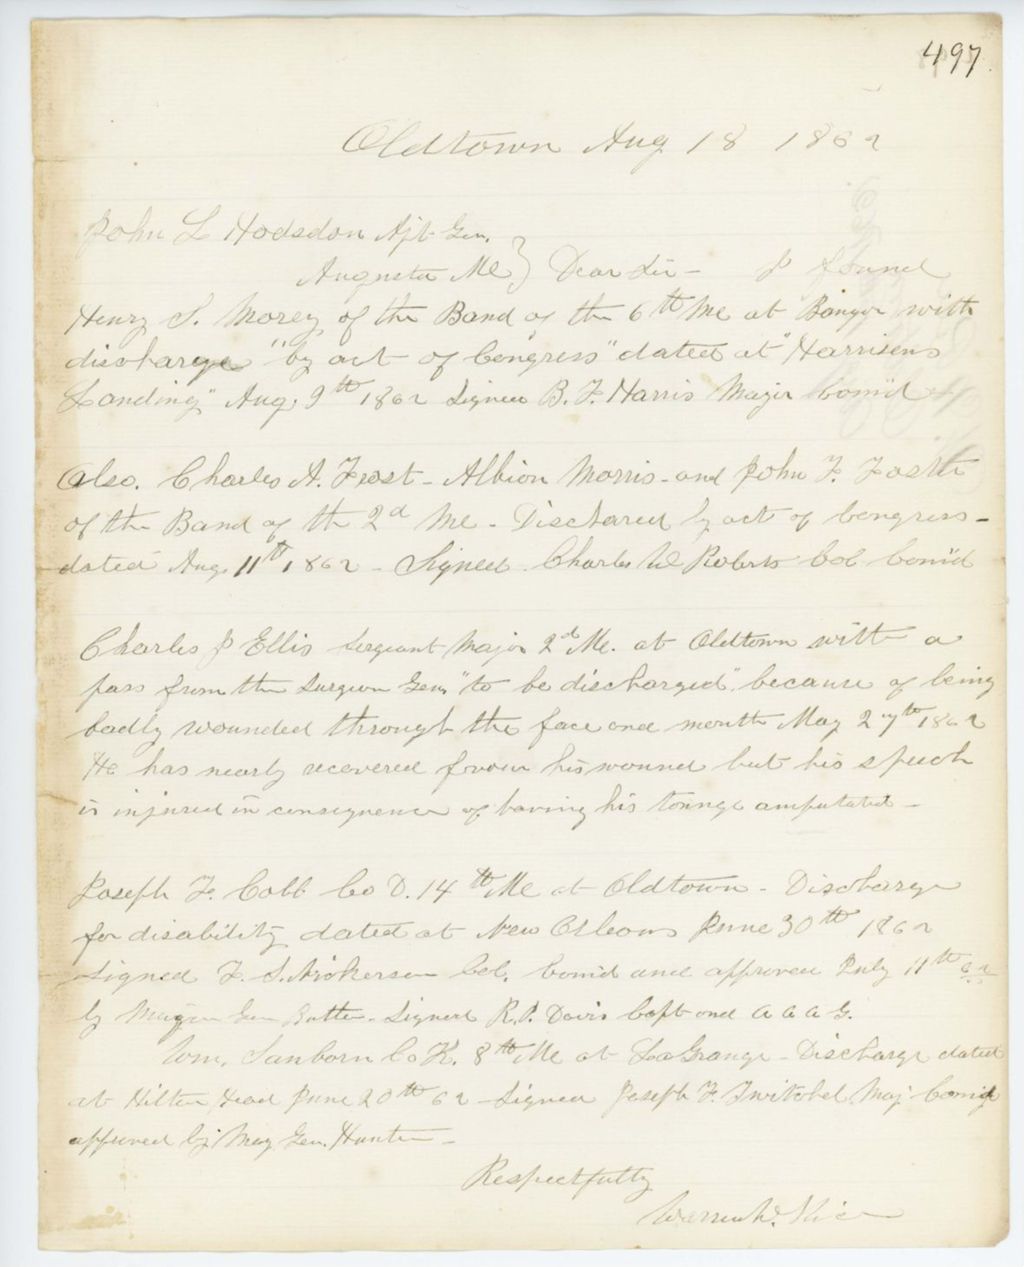 497
Oldtown Aug 18 1862
John L Hodsdon Ajt Gen.
Augusta Me } Dear Sir - I found
Henry S. Morey of the Band of the 6th Me at Bangor with
discharge "by act of Congress" dated at "Harrisons
Landing" Aug. 9th 1862 Signed B. F. Harris Major Com'd
Also. Charles A. Frost - Albion Morris - and John F. Foster
of the Band of the 2d Me - Dischared by act of Congress -
dated Aug. 11th 1862 - Signed Charles W Roberts Col Com'd
Charles J Ellis Sergeant Major 2d Me. at Oldtown with a
pass from the Surgeon Gen, "to be discharged" because of being
badly wounded through the face and mouth May 27th 1862
He has nearly recovered from his wound but his speech
is injured in consequence of having his tounge amputated -
Joseph F. Cobb Co D. 14th Me at Oldtown - Discharge
for disability dated at New Orleans June 30th 1862
Signed F. S. Nickerson Col. Com'd and approved July 11th 62
by Major Gen Butler - Signed R. S. Davis Capt and A A A G.
Wm. Sanborn Co K. 8th Me at LaGrange - Discharge dated
at Hilton Head June 20th 62 - Signed Joseph F. Twitchel Maj Comdg
approved by Maj Gen. Hunter -
Respectfully
Warren W. Rice